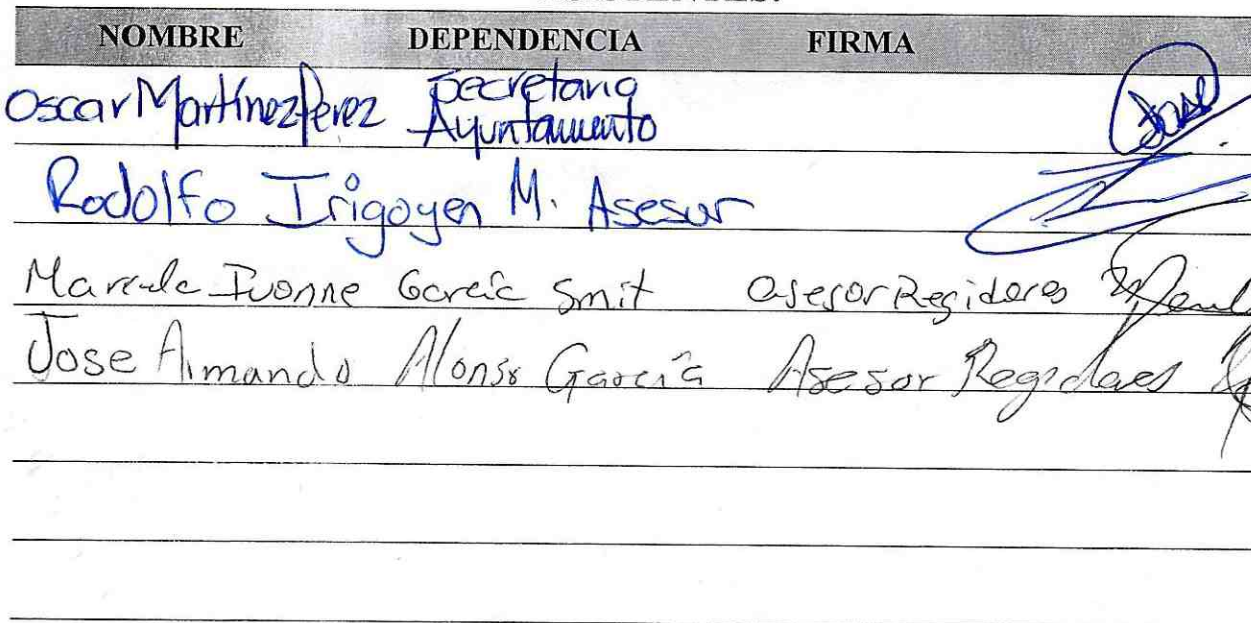 NOMBRE DEPENDENCIA FIRMA
Oscar Martínez Pérez Secretaria
Ayuntamiento
Rodolfo Irigoyen M. Asesor
Marcela Ivonne García Smit asesor Regidores
Jose Armando Alonso García Asesor Regidores